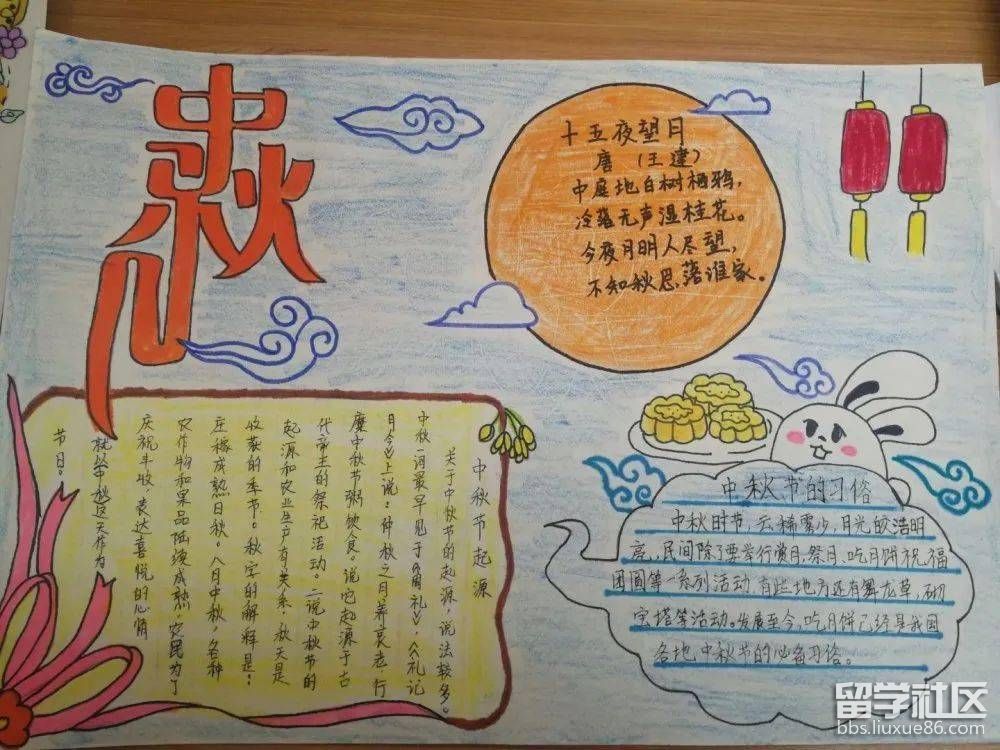 中秋
十五夜望月
唐 (王建)
中庭地白树栖鸦，
冷露无声湿桂花。
今夜月明人尽望，
不知秋思落谁家。
中秋节起源
关于中秋节的起源，说法较多。
中秋一词最早见于《周礼》，《礼记
月令》上说：仲秋之月养衰老，行
糜粥饮食。
代帝王的祭祀活动。二说中秋节的
起源和农业生产有关系，秋天是
收获的季节。秋字的解释是：
庄稼成熟曰秋。八月中秋，各种
农作物和果品陆续成熟，农民为了
庆祝丰收，表达喜悦的心情
就以中秋这天作为
节日。
中秋节的习俗
中秋时节，云稀雾少，月光皎洁明
亮，民间除了要举行赏月、祭月、吃月饼祝福
团圆等一系列活动，有些地方还有舞龙草，砌
宝塔等活动。发展至今，吃月饼已经是我国
各地中秋节的必备习俗。
留学社区
bbs.liuxue86.com